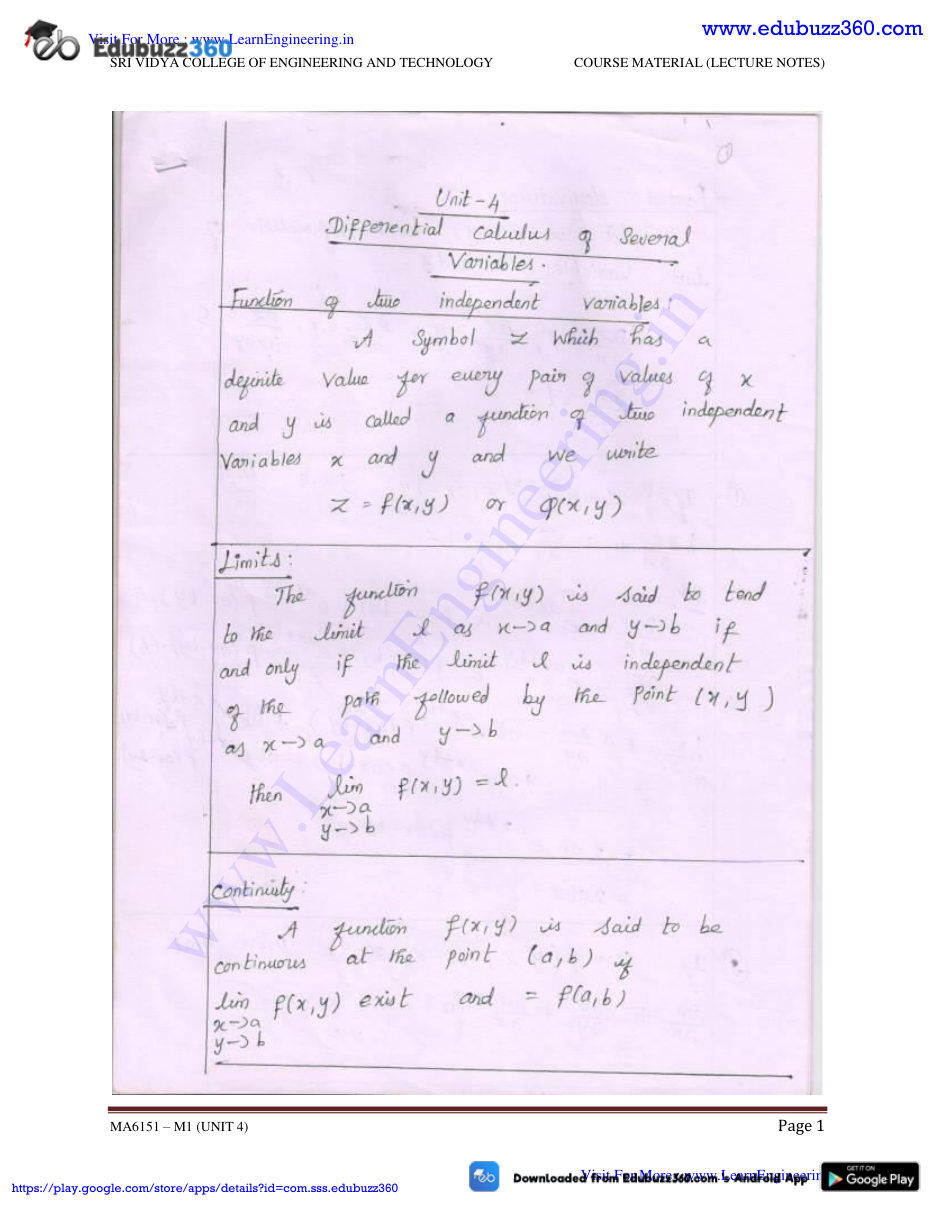 Visit For More : www.LearnEngineering.in
www.edubuzz360.com
Edubuzz360
SRI VIDYA COLLEGE OF ENGINEERING AND TECHNOLOGY COURSE MATERIAL (LECTURE NOTES)
1
Unit - 4
Differential Calculus of Several
Variables.
Function of two independent variables:
A Symbol z which has a
definite value for every pair of values of x
and y is called a function of two independent
Variables x and y and we write
z = f(x,y) or φ(x,y)
Limits:
The function f(x,y) is said to tend
to the limit l as x→a and y→b if
and only if the limit l is independent
of the path followed by the Point (x,y)
as x→a and y→b
then lim f(x,y) = l.
x→a
y→b
Continuity:
A function f(x,y) is said to be
continuous at the point (a,b) if
lim f(x,y) exist and = f(a,b)
x→a
y→b
www.LearnEngineering.in
MA6151 – M1 (UNIT 4) Page 1
https://play.google.com/store/apps/details?id=com.sss.edubuzz360
Downloaded from EduBuzz360.com 's Android App
Visit For More : www.LearnEngineerin
GET IT ON
Google Play